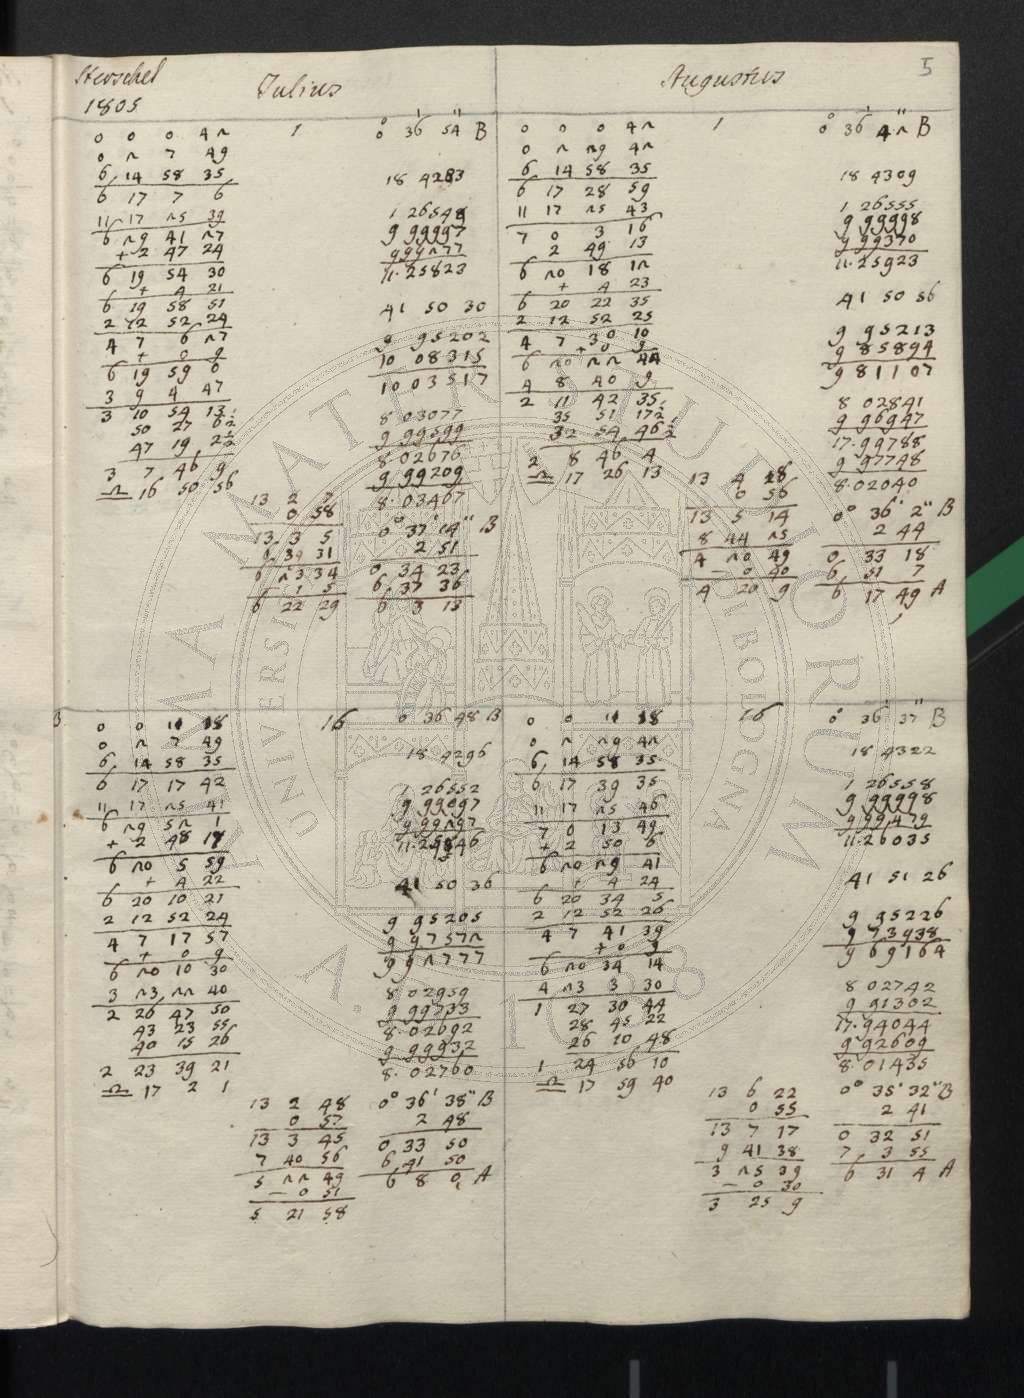 Herschel
1805
Julius
Augustus
5
0 0 0 42
0 2 7 49
6 14 58 35
6 17 7 6
11 17 25 39
6 29 41 27
+ 2 47 24
6 19 54 30
+ 4 21
6 19 58 51
2 12 52 24
4 7 6 27
+ 0 9
6 19 59 0
3 9 4 47
3 10 54 13
50 27 6½
47 19 2½
3 7 46 9
♎ 16 50 56
1
0° 36' 54" B
18 4283
1 26549
9 99997
9 99277
11.25823
41 50 30
9 95202
10 08315
10 03517
8 03077
9 99599
8 02676
9 99209
8.03467
13 2 7
0 58
13 3 5
6 39 31
6 23 34
– 1 5
6 22 29
0° 37' 14" B
2 51
0 34 23
6 37 36
6 3 13
0 0 0 42
0 2 29 42
6 14 58 35
6 17 28 59
11 17 25 43
7 0 3 16
2 49 13
6 20 18 12
+ 4 23
6 20 22 35
2 12 52 25
4 7 30 10
+ 0 9
6 20 22 44
4 8 40 9
2 11 42 35
35 51 17½
32 54 46½
2 8 46 4
♎ 17 26 13
1
0° 36' 42" B
18 4309
1 26555
9 99998
9 99370
11.25923
41 50 56
9 95213
9 85894
9 81107
8 02841
9 96947
17.99788
9 97748
8.02040
13 4 18
0 56
13 5 14
8 44 25
4 20 49
– 0 40
4 20 9
0° 36' 2" B
2 44
0 33 18
6 51 7
6 17 49 A
0 0 11 18
0 2 7 49
6 14 58 35
6 17 17 42
11 17 25 41
6 29 52 1
+ 2 48 17
6 20 5 59
+ 4 22
6 20 10 21
2 12 52 24
4 7 17 57
+ 0 9
6 20 10 30
3 23 22 40
2 26 47 50
43 23 55
40 15 26
2 23 39 21
♎ 17 2 1
16
0 36 48 B
18 4296
1 26552
9 99997
9 99297
11.25846
41 50 36
9 95205
9 97572
9 92777
8 02959
9 99733
8.02692
9 99932
8.02760
13 2 48
0 57
13 3 45
7 40 56
5 22 49
– 0 51
5 21 58
0° 36' 38" B
2 48
0 33 50
6 41 50
6 8 0 A
0 0 11 18
0 2 29 42
6 14 58 35
6 17 39 35
11 17 25 46
7 0 13 49
+ 2 50 6
6 20 29 41
+ 4 24
6 20 34 5
2 12 52 26
4 7 41 39
+ 0 9
6 20 34 14
4 23 3 30
1 27 30 44
28 45 22
26 10 48
1 24 56 10
♎ 17 59 40
16
0° 36' 37" B
18 4322
1 26558
9 99998
9 99479
11.26035
41 51 26
9 95226
9 73938
9 69164
8 02742
9 91302
17.94044
9 92609
8.01435
13 6 22
0 55
13 7 17
9 41 38
3 25 39
– 0 30
3 25 9
0° 35' 32" B
2 41
0 32 51
7 3 55
6 31 4 A
ALMA MATER STUDIORUM
A.D. 1088
UNIVERSITÀ DI BOLOGNA